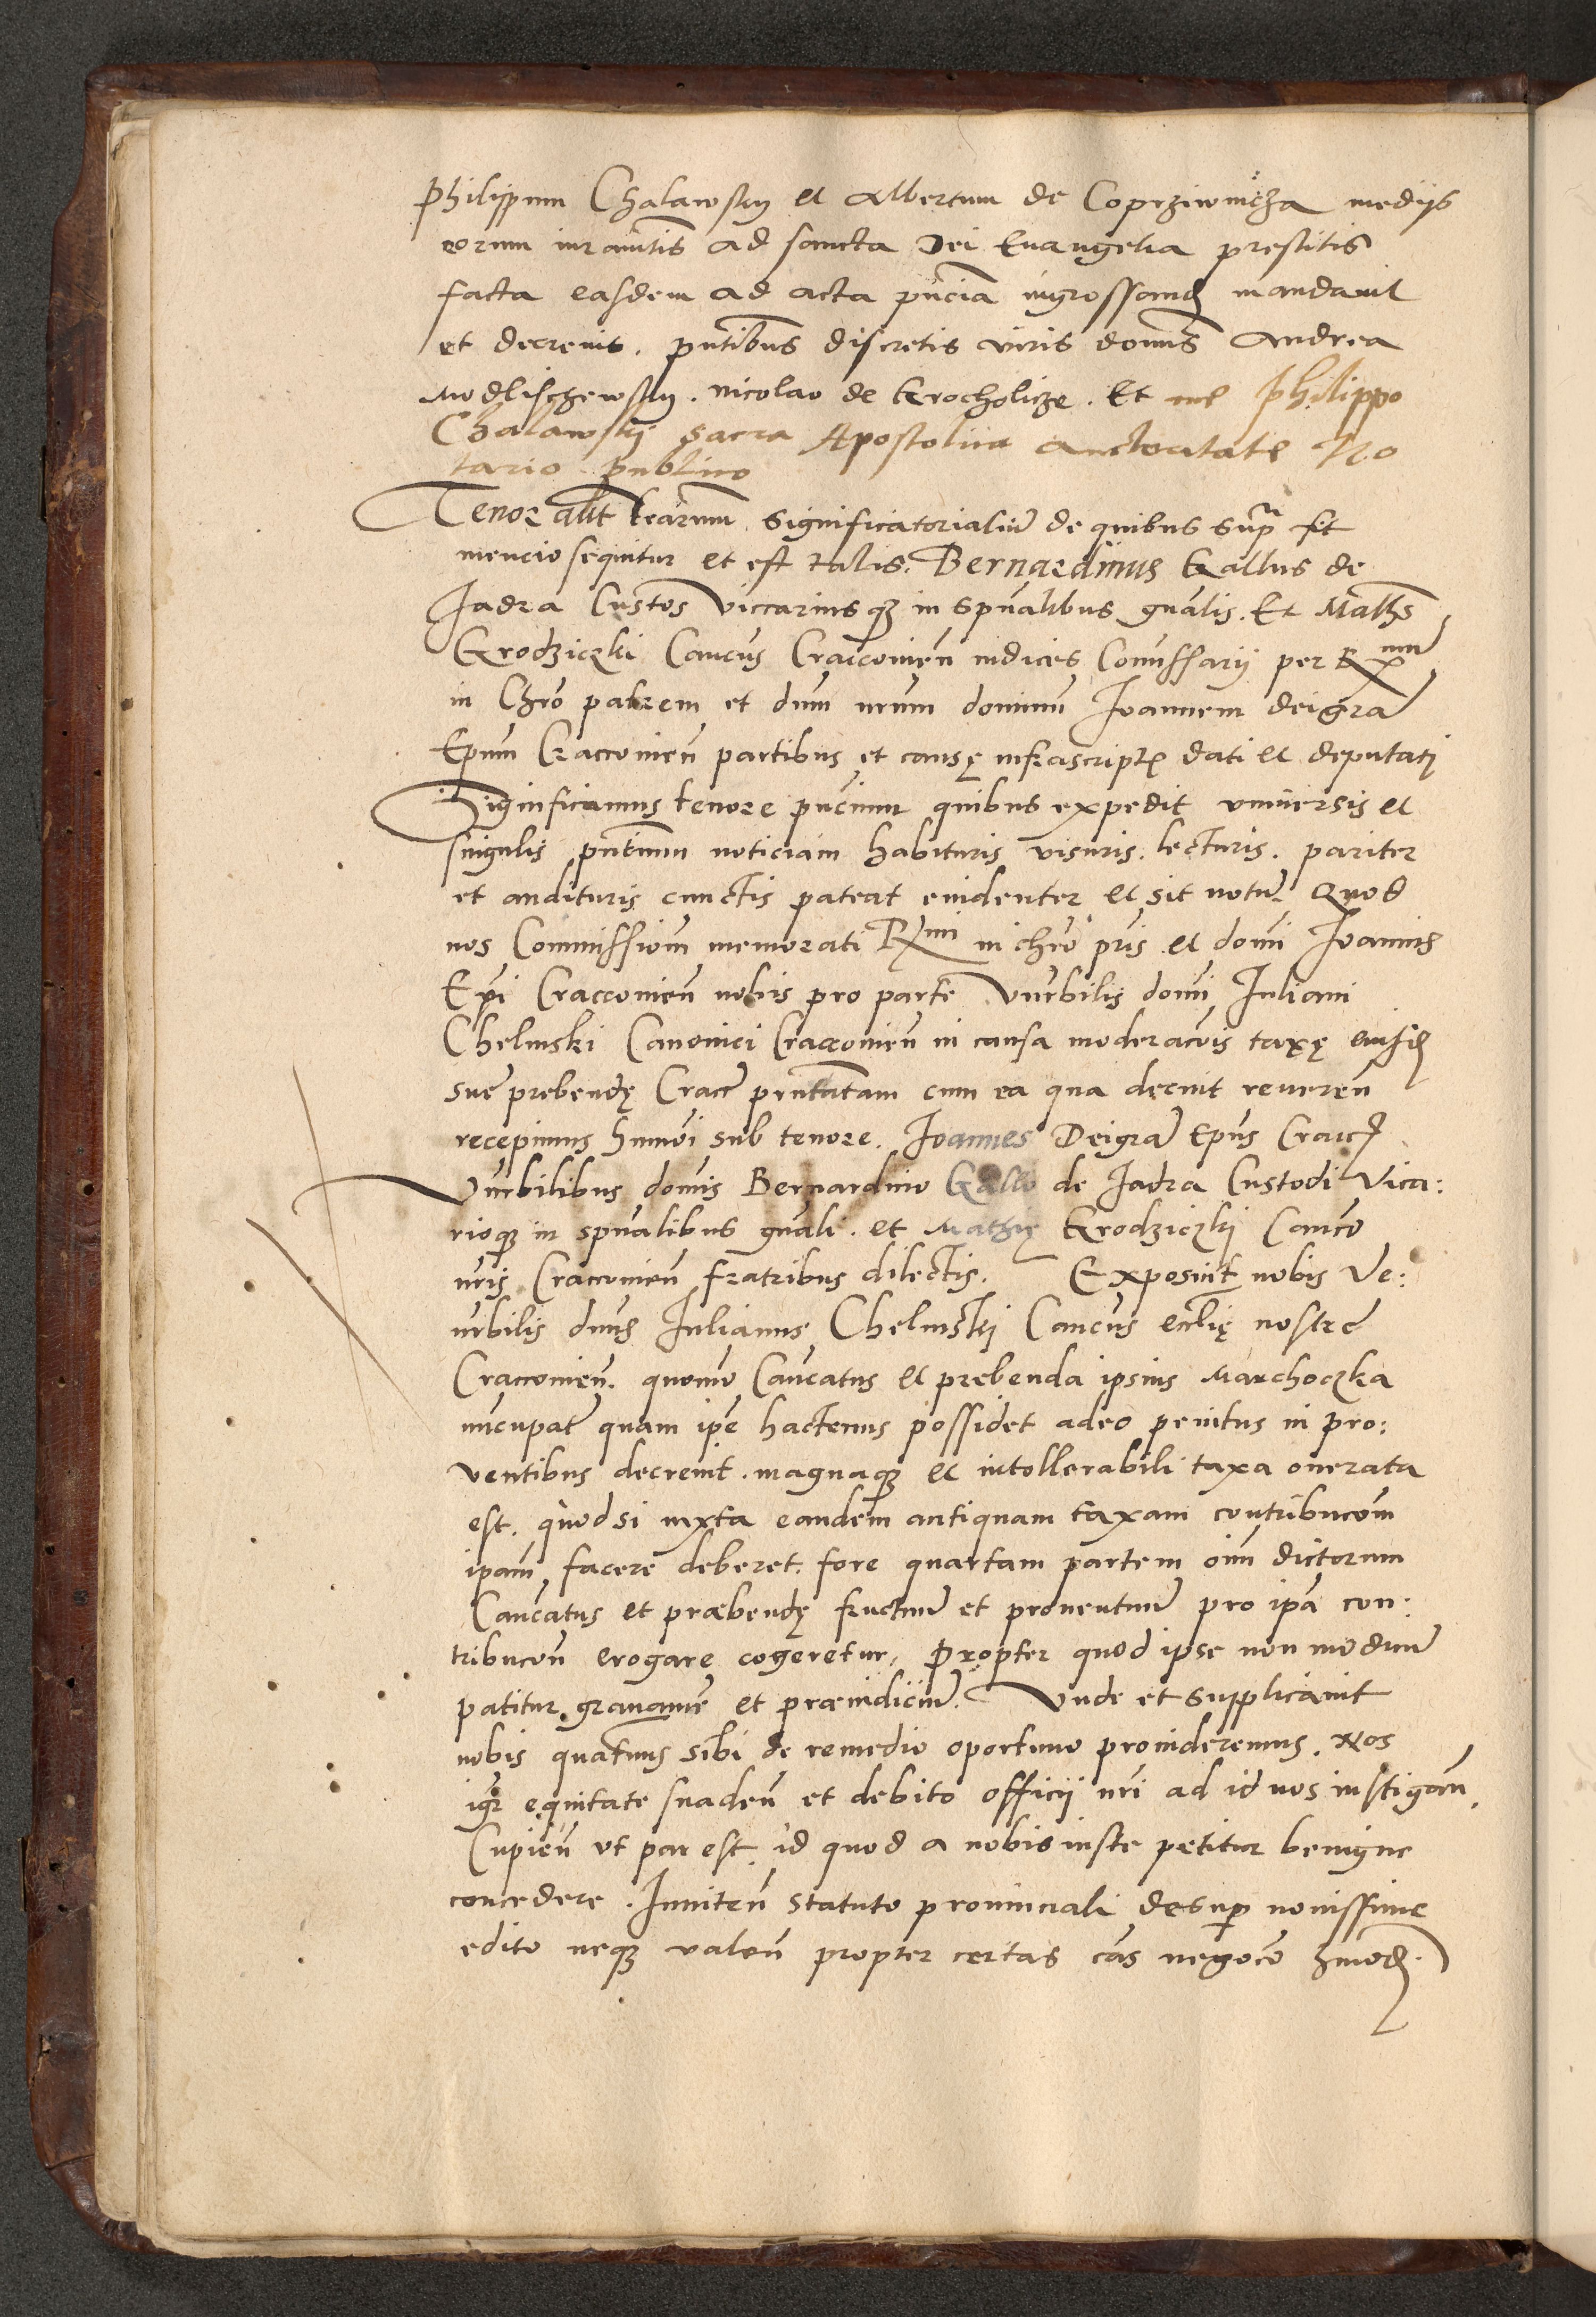 Philippum Chalawsky et Albertum de Coprziwnicza medijs
eorum iurantis ad sancta Dei Euangelia prestitis
facta easdem ad acta pñcia ingrossand mandauit
et decreuit. pñtibus discretis viris domīs Andrea
Modlischewsky. Nicolao de Krocholicze. Et me Philippo
Chalawskj Sacra Apostolica auctoritate No
tario publico
Tenor aūt lrarum significatorialiū de quibus supra fit
mencio sequitur et est talis. Bernardinus Gallus de
Jadra Custos Viccariusq3 in spūalibus gnālis. Et Maths
Grodziczki Canous Craccouieñ iudices Comissarij per R mum
in Chro patrem et dnm nrum dominum Joannem deigrã
Epum Craccouieñ partibus et causę infrascript dati et deputatj
Significamus tenore pñcium quibus expedit vniuersis et
singulis pñtium noticiam habituris visuris. lecturis. pariter
et audituris cunctis pateat euidenter et sit notũ Quod
nos Commissiom memorati R mi in chro pris et domi Joannis
Epi Craccouieñ nobis pro parte Vnrbilis domi Juliani
Chelmski Canonici Craccouieñ in causa moderacõis taxę eiusd
sue prebendę Cracc pñtatam cum ea qua decuit reuereñ
recepimus hmõi sub tenore. Joannes Deigrã Epus Cracc
Vnrbilibus domis Bernardino Gallo de Jadra Custodi Vica:
rioq3 in spūalibus gnāli. et Mathię Grodziczkj Canco
nris Craccouieñ fratribus dilectis. Exposuit nobis Ve:
nrbilis dnus Julianus Chelmskj Cancus ecclię nostre
Craccouieñ. quomo Cancatus et prebenda ipsius Marchoczka
nucupat quam ipe hactenus possidet adeo penitus in pro:
ventibus decreuit. magnaq3 et intollerabili taxa onerata
est. quod si iuxta eandem antiquam taxam contribucom
ipam facere deberet. fore quartam partem oim dictorum
Cancatus et præbendę fructuũ et prouentuũ pro ipa con:
tribucoñ erogare cogeretur, Propter quod ipse non modicũ
patitur grauamē et præiudiciũ. Vnde et supplicauit
nobis quatenus sibi de remedio oportuno prouideremus. Nos
igr ęquitate suadeñ et debito officij nri ad id nos instigañ.
Cupieñ vt par est id quod a nobis iuste petitur benigne
concedere. Inniteñ statuto prouinciali desup nouissime
edito neq3 valeñ propter certas cas negoco hmoð.